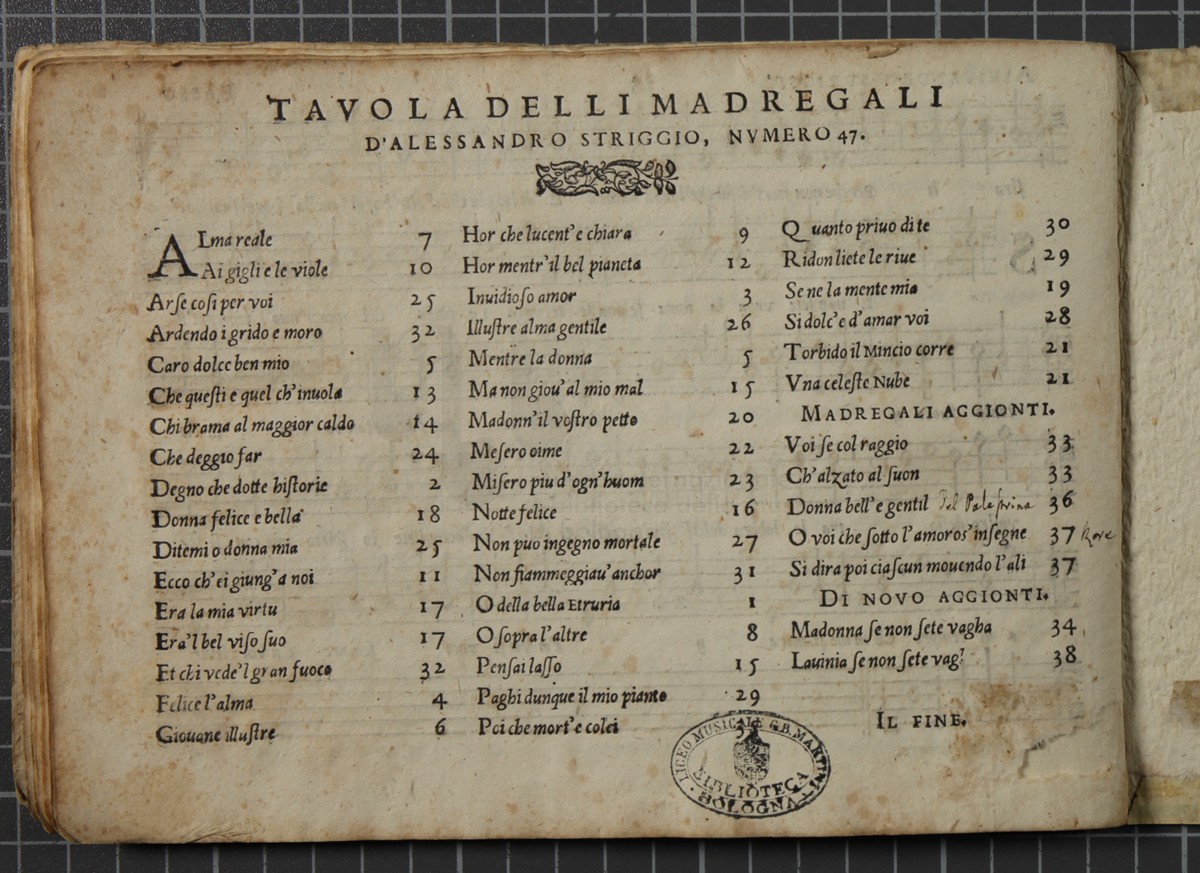 TAVOLA DELLI MADREGALI
D'ALESSANDRO STRIGGIO, NVMERO 47.
ALma reale 7
Ai gigli e le viole 10
Arſe coſi per voi 25
Ardendo i grido e moro 32
Caro dolce ben mio 5
Che queſti e quel ch'inuola 13
Chi brama al maggior caldo 14
Che deggio far 24
Degno che dotte hiſtorie 2
Donna felice e bella 18
Ditemi o donna mia 25
Ecco ch'ei giung'a noi 11
Era la mia virtu 17
Era'l bel viſo ſuo 17
Et chi vede'l gran fuoco 32
Felice l'alma 4
Giouane illuſtre 6
Hor che lucent'e chiara 9
Hor mentr'il bel pianeta 12
Inuidioſo amor 3
Illuſtre alma gentile 26
Mentre la donna 5
Ma non giou'al mio mal 15
Madonn'il voſtro petto 20
Meſero oime 22
Miſero piu d'ogn'huom 23
Notte felice 16
Non puo ingegno mortale 27
Non fiammeggiau'anchor 31
O della bella Etruria 1
O ſopra l'altre 8
Penſai laſſo 15
Paghi dunque il mio pianto 29
Poi che mort'e colei
Quanto priuo di te 30
Ridon liete le riue 29
Se ne la mente mia 19
Si dolc'e d'amar voi 28
Torbido il Mincio corre 21
Vna celeſte Nube 21
MADREGALI AGGIONTI.
Voi ſe col raggio 33
Ch'alzato al ſuon 33
Donna bell'e gentil del Palestrina 36
O voi che ſotto l'amoroſ'inſegne 37 Rore
Si dira poi ciaſcun mouendo l'ali 37
DI NOVO AGGIONTI.
Madonna ſe non ſete vagha 34
Lauinia ſe non ſete vag' 38
IL FINE.
LICEO MUSICALE G.B. MARTINI
BIBLIOTECA
BOLOGNA